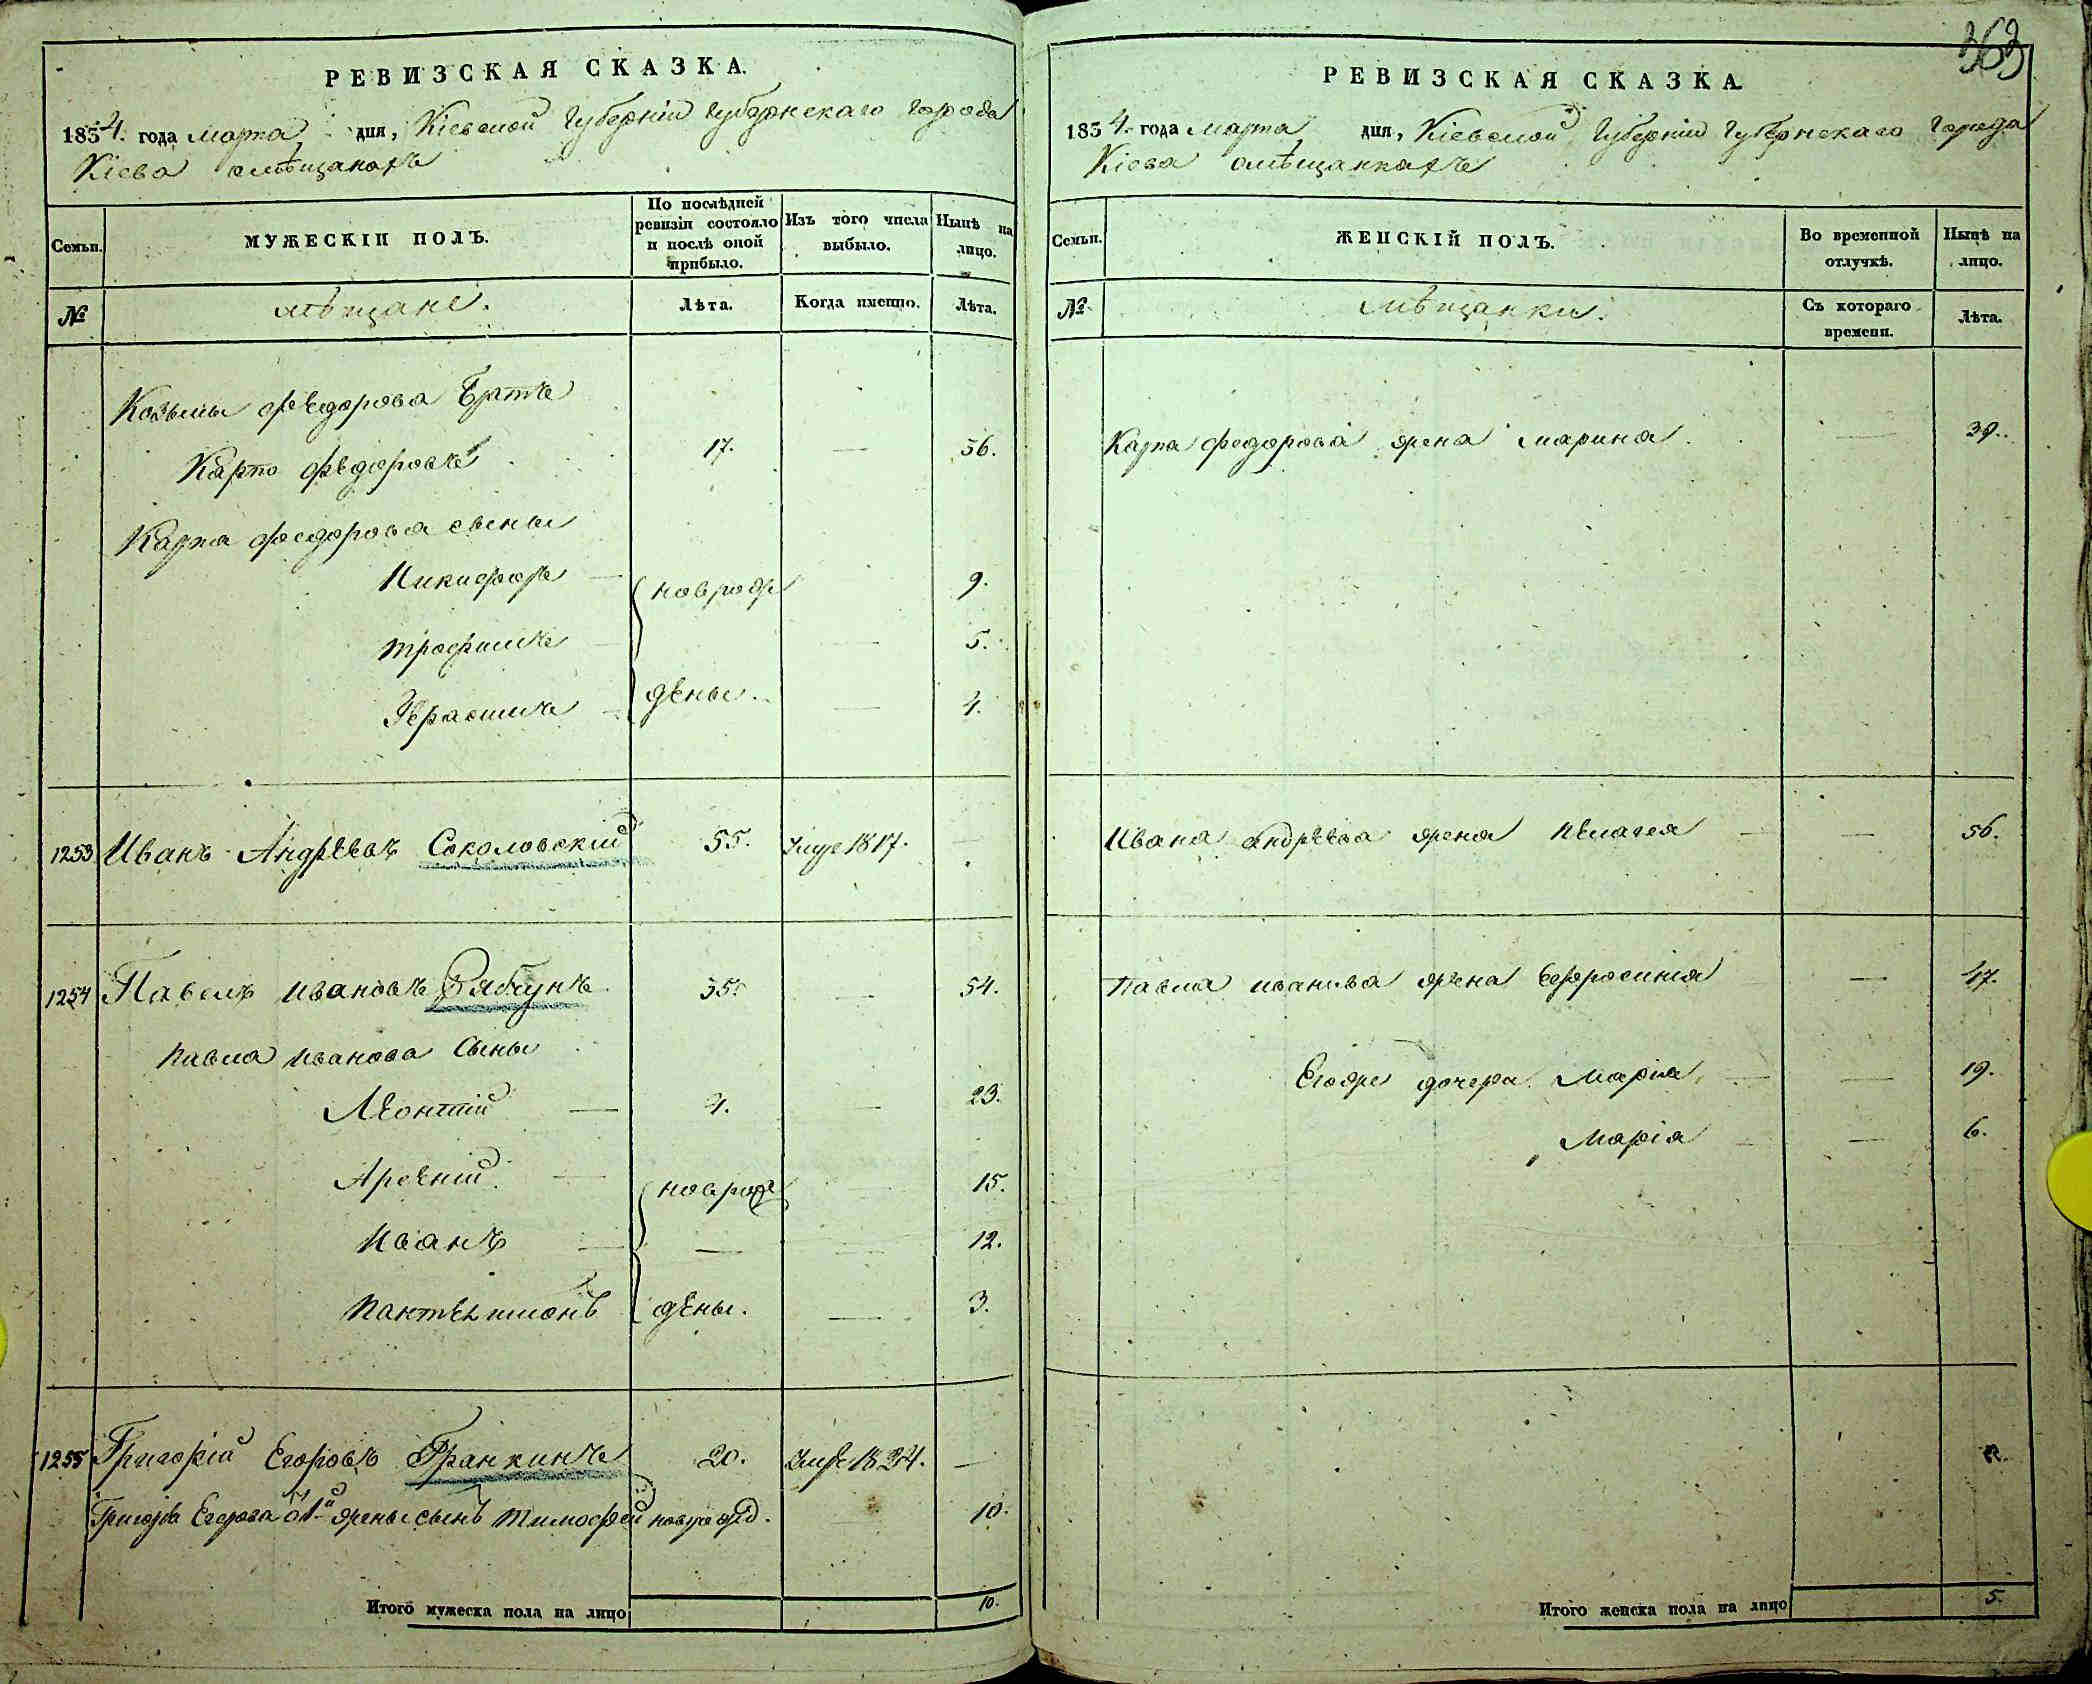 363
РЕВИЗСКАЯ СКАЗКА.
1854. года марта дня, Кіевской Губерніи Губернскаго города
Кіева о мѣщанахъ
Семьи. МУЖЕСКІЙ ПОЛЪ. По послѣдней ревизіи состояло и послѣ оной прибыло. Изъ того числа выбыло. Нынѣ на лицо.
№ мѣщане. Лѣта. Когда именно. Лѣта.
Козьмы Федорова братъ
Карпо Федоровъ 17. — 56.
Карпа Федорова сыны
Никифоръ — новрож 9.
Трофимъ — 5.
Герасимъ — дены. — 4.
1253 Иванъ Андреевъ Соколовскій 55. Умре 1817.
1254 Павелъ Ивановъ Рябчунъ 35. — 54.
Павла Иванова сыны
Леонтій — 4. — 23.
Арсеній — новрож 15.
Иванъ — 12.
Пантелимонъ дены. — 3.
1255 Григорій Егоровъ Гранкинъ 20. Умре 1824. —
Григорія Егорова отъ 1й жены сынъ Тимофей новрожд. 10.
Итого мужеска пола на лицо 10.
РЕВИЗСКАЯ СКАЗКА.
1854. года марта дня, Кіевской Губерніи Губернскаго города
Кіева о мѣщанкахъ
Семьи. ЖЕНСКІЙ ПОЛЪ. Во временной отлучкѣ. Нынѣ на лицо.
№ мѣщанки. Съ котораго времени. Лѣта.
Карпа Федорова жена Марина. — 39.
Ивана Андреева жена Пелагея — — 56.
Павла Иванова жена Ефросинія — 47.
Егоже дочери Марія — — 19.
„ Марія — — 6.
Итого женска пола на лицо 5.